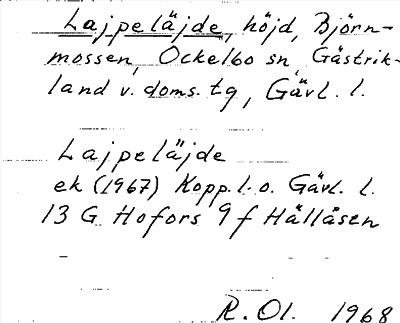 Lajpeläjde, höjd, Björn-
mossen, Ockelbo sn Gästrik-
land v. doms. tg, Gävl. l.
Lajpeläjde
ek (1967) Kopp. l. o. Gävl. l.
13 G Hofors 9 f Hållåsen
R. Ol. 1968